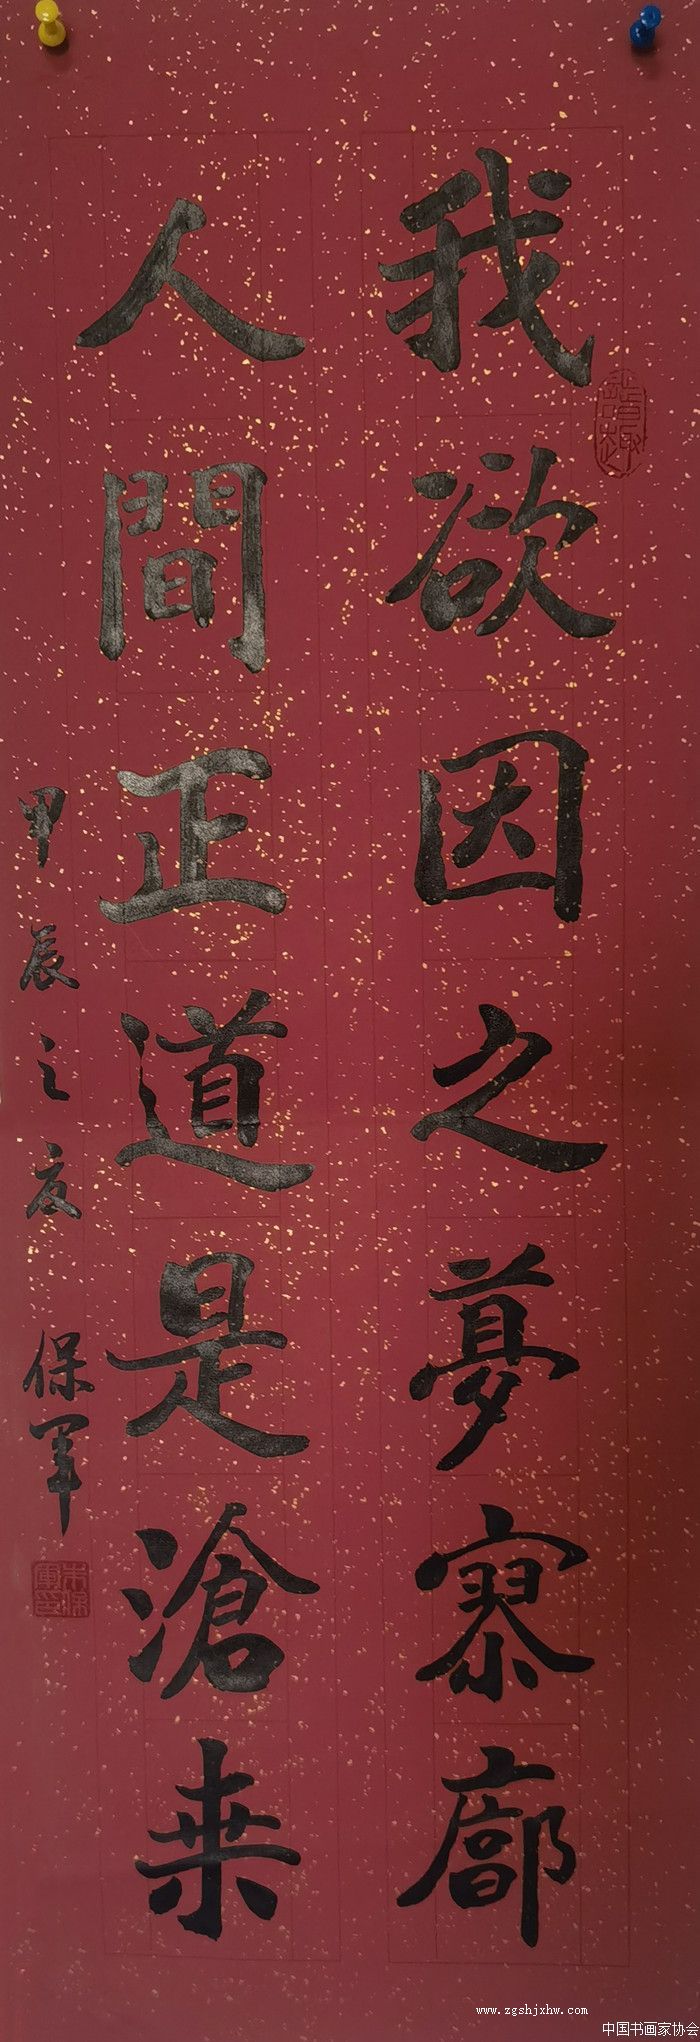 我欲因之夢寥廓
人間正道是滄桒
甲辰之夏 保军
www.zgshjxhw.com
中国书画家协会